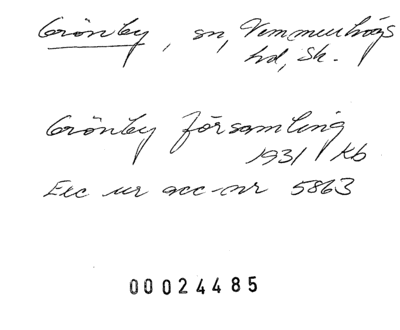 Grönby, sn, Vemmenhögs
hd, Sk.
Grönby församling
1931 Kb
Exc ur acc-nr 5863
00024485